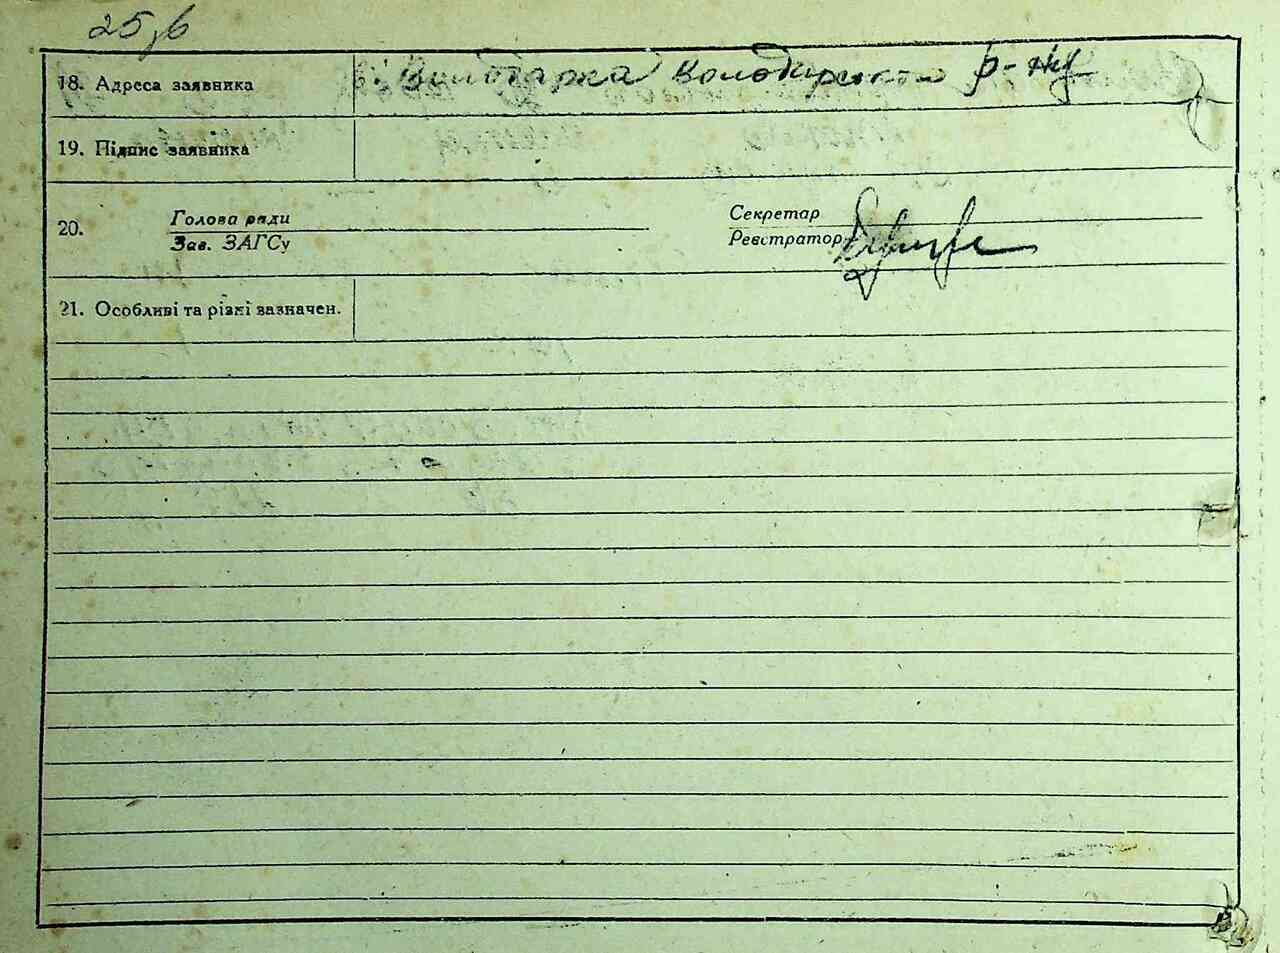 25 зв
18. Адреса заявника р-ну
19. Підпис заявника
20. Голова ради Секретар
Зав. ЗАГСу Реєстратор
21. Особливі та різні зазначен.